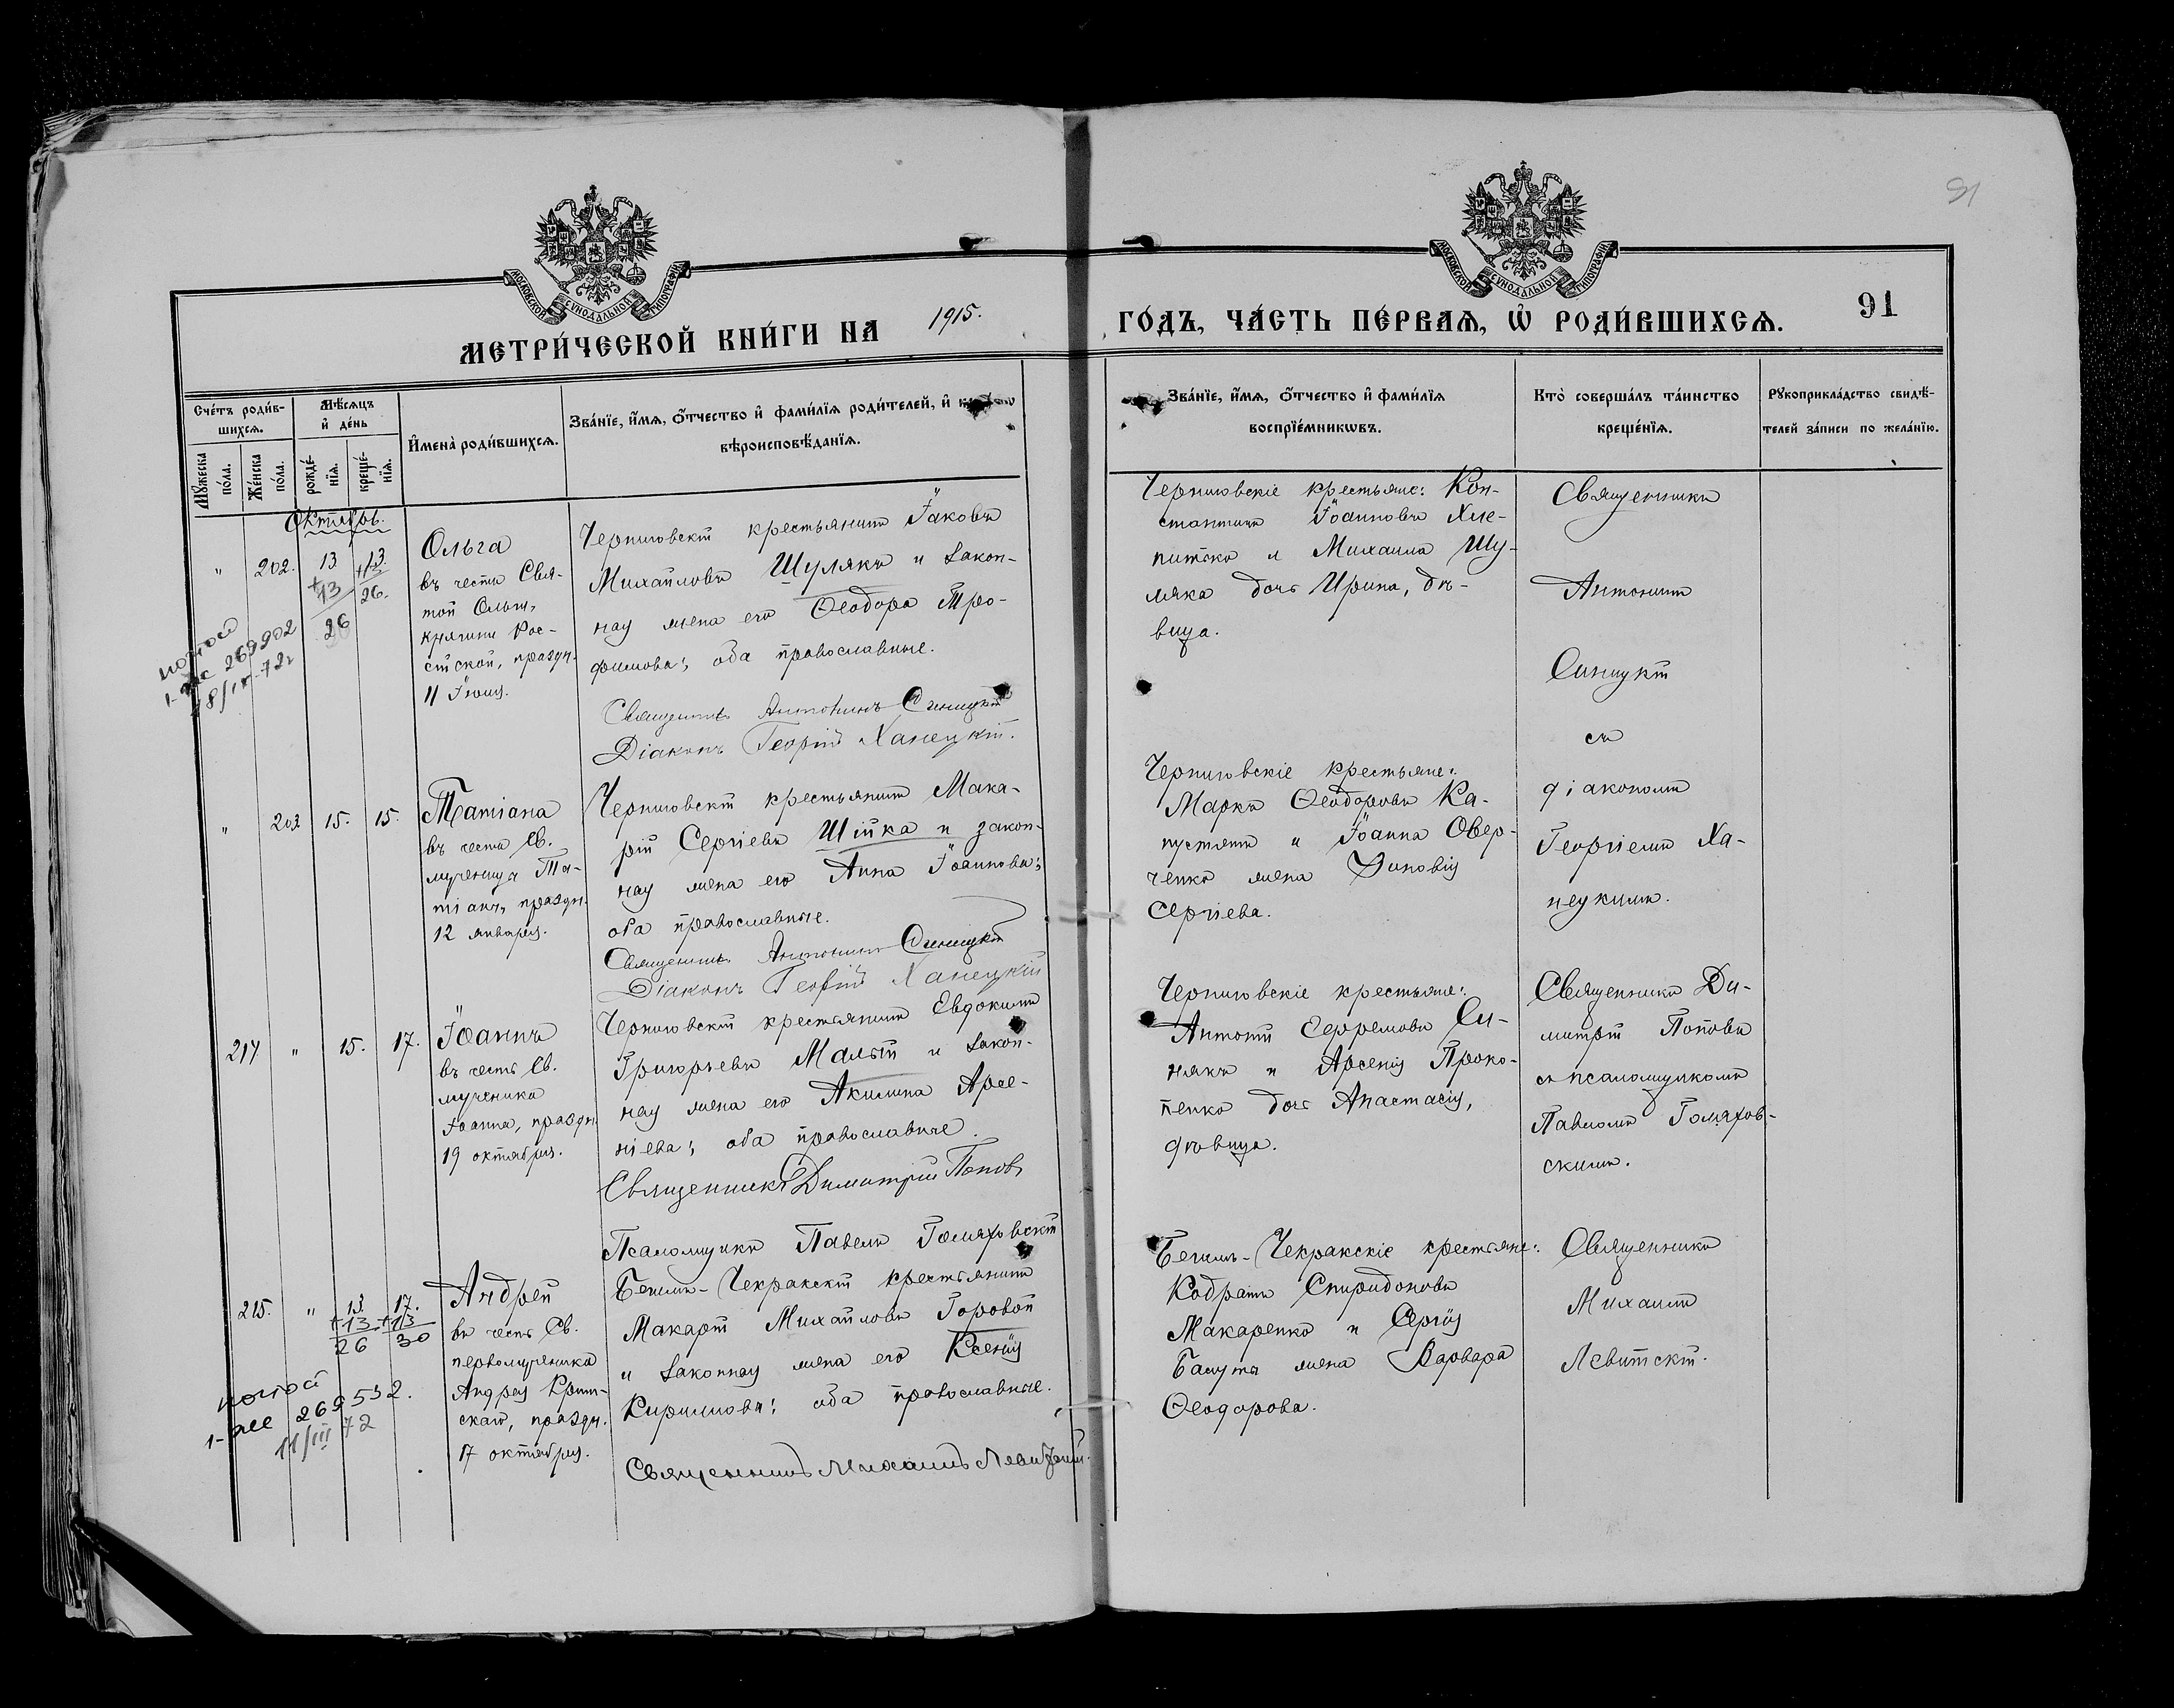 91
МОСКОВСКОЙ СУНОДАЛЬНОЙ ТИПОГРАФІИ
МОСКОВСКОЙ СУНОДАЛЬНОЙ ТИПОГРАФІИ
МЕТРИ́ЧЕСКОЙ КНИ́ГИ НА 1915. ГО́ДЪ, ЧА́СТЬ ПЕ́РВАѦ, Ѡ҆ РОДИ́ВШИХСѦ. 91
Сче́тъ роди́в-
шихсѧ.
Мѣ́сѧцъ
и҆ де́нь
Мꙋ́жеска
по́ла.
Же́нска
по́ла.
рожде́-
нїѧ.
креще́-
нїѧ.
И҆мена̀ роди́вшихсѧ.
Зва́нїе, и҆́мѧ, ѻ҆́тчество и҆ фами́лїѧ роди́телей, и҆
вѣроисповѣ́данїѧ.
Зва́нїе, и҆́мѧ, ѻ҆́тчество и҆ фами́лїѧ
воспрїе́мникѡвъ.
Кто̀ соверша́лъ та́инство
креще́нїѧ.
Рꙋкоприкла́дство свидѣ́-
телей за́писи по жела́нїю.
Октябрь.
" 202. 13 13.
+13 +13
26 26.
Ольга
въ честь Свя-
той Ольги,
княгини Рос-
сійской, праздн.
11 Іюля.
Черниговскій крестьянинъ Іаковъ
Михайловъ Шулякъ и закон-
ная жена его Ѳеодора Тро-
фимова; оба православные.
Священникъ Антонинъ Синицкій
Діаконъ Георгій Ханецкій.
Черниговскіе крестьяне: Кон-
стантинъ Іоанновъ Хле-
питько и Михаила Шу-
ляка дочь Ирина, дѣ-
вица.
Священникъ
Антонинъ
Синицкій
съ
діакономъ
Георгіемъ Ха-
нецкимъ.
269902
18/IX-72г
" 203 15. 15.
Татіана
въ честь Св.
мученицы Та-
тіаны, праздн.
12 января.
Черниговскій крестьянинъ Мака-
рій Сергіевъ Шійка и закон-
ная жена его Анна Іоаннова;
оба православные.
Священникъ Антонинъ Синицкій
Діаконъ Георгій Ханецкій
Черниговскіе крестьяне:
Маркъ Ѳеодоровъ Ка-
пустянъ и Іоанна Овер-
ченко жена Зиновія
Сергіева.
214 " 15. 17.
Іоаннъ
въ честь Св.
мученика
Іоанна, праздн.
19 октября.
Черниговскій крестьянинъ Евдокимъ
Григорьевъ Малый и закон-
ная жена его Акилина Арсе-
ніева; оба православные.
Священникъ Димитрій Поповъ
Псаломщикъ Павелъ Голяховскій
Черниговскіе крестьяне:
Антоній Ефремовъ Си-
някъ и Арсенія Проко-
пенко дочь Анастасія,
дѣвица.
Священникъ Ди-
митрій Поповъ
съ псаломщикомъ
Павломъ Голяхов-
скимъ.
215. " 13 17.
+13 +13
26 30
Андрей
въ честь Св.
первомученика
Андрея Крит-
скаго, праздн.
17 октября.
Бегимъ-Чекракскій крестьянинъ
Макарій Михайловъ Горовой
и законная жена его Ксенія
Кириллова; оба православные.
Священникъ Михаилъ Левитскій.
Бегимъ-Чекракскіе крестьяне:
Кодратъ Спиридоновъ
Макаренко и Сергія
жена Варвара
Ѳеодорова.
Священникъ
Михаилъ
Левитскій.
269532.
11/III 72